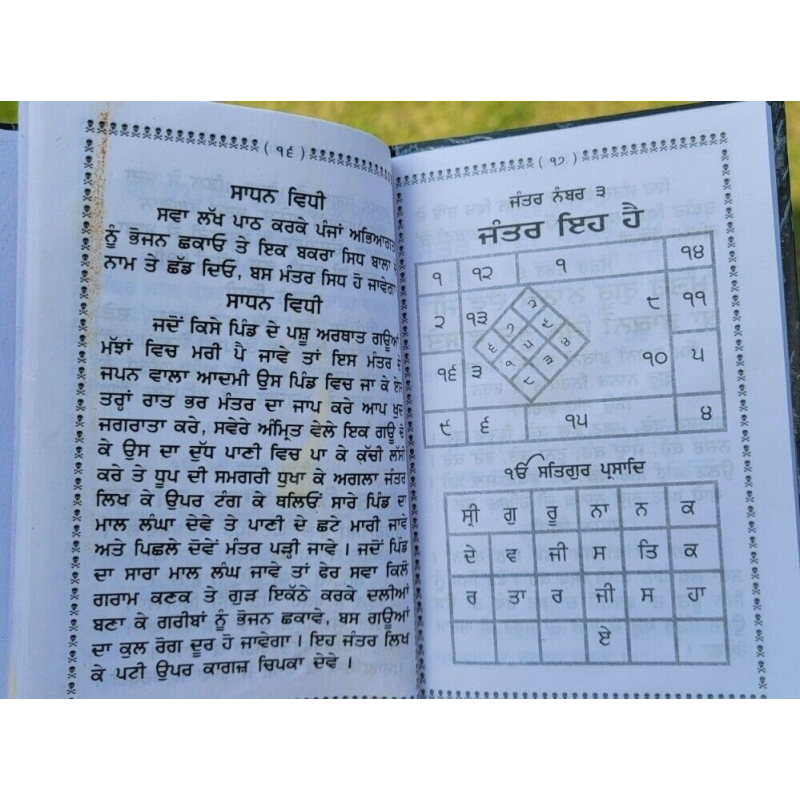 ( ੧੬ )
ਸਾਧਨ ਵਿਧੀ
ਸਵਾ ਲੱਖ ਪਾਠ ਕਰਕੇ ਪੰਜਾਂ ਅਭਿਆਗਤ
ਨੂੰ ਭੋਜਨ ਛਕਾਓ ਤੇ ਇਕ ਬਕਰਾ ਸਿਧ ਬਾਲਾ
ਨਾਮ ਤੇ ਛੱਡ ਦਿਓ, ਬਸ ਮੰਤਰ ਸਿਧ ਹੋ ਜਾਵੇਗਾ
ਸਾਧਨ ਵਿਧੀ
ਜਦੋਂ ਕਿਸੇ ਪਿੰਡ ਦੇ ਪਸ਼ੂ ਅਰਥਾਤ ਗਊਆਂ
ਮੱਝਾਂ ਵਿਚ ਮਰੀ ਪੈ ਜਾਵੇ ਤਾਂ ਇਸ ਮੰਤਰ ਦੇ
ਜਪਨ ਵਾਲਾ ਆਦਮੀ ਉਸ ਪਿੰਡ ਵਿਚ ਜਾ ਕੇ ਏਸ
ਤਰ੍ਹਾਂ ਰਾਤ ਭਰ ਮੰਤਰ ਦਾ ਜਾਪ ਕਰੇ ਆਪ ਖੁਦ
ਜਗਰਾਤਾ ਕਰੇ, ਸਵੇਰੇ ਅੰਮ੍ਰਿਤ ਵੇਲੇ ਇਕ ਗਊ ਚੋ
ਕੇ ਉਸ ਦਾ ਦੁੱਧ ਪਾਣੀ ਵਿਚ ਪਾ ਕੇ ਕੱਚੀ ਲੱਸੀ
ਕਰੇ ਤੇ ਧੂਪ ਦੀ ਸਮਗਰੀ ਧੁਖਾ ਕੇ ਅਗਲਾ ਜੰਤਰ
ਲਿਖ ਕੇ ਉਪਰ ਟੰਗ ਕੇ ਥਲਿਓਂ ਸਾਰੇ ਪਿੰਡ ਦਾ
ਮਾਲ ਲੰਘਾ ਦੇਵੇ ਤੇ ਪਾਣੀ ਦੇ ਛਟੇ ਮਾਰੀ ਜਾਵੇ
ਅਤੇ ਪਿਛਲੇ ਦੋਵੇਂ ਮੰਤਰ ਪੜ੍ਹੀ ਜਾਵੇ । ਜਦੋਂ ਪਿੰਡ
ਦਾ ਸਾਰਾ ਮਾਲ ਲੰਘ ਜਾਵੇ ਤਾਂ ਫੇਰ ਸਵਾ ਕਿਲੋ
ਗਰਾਮ ਕਣਕ ਤੇ ਗੁੜ ਇਕੱਠੇ ਕਰਕੇ ਦਲੀਆਂ
ਬਣਾ ਕੇ ਗਰੀਬਾਂ ਨੂੰ ਭੋਜਨ ਛਕਾਵੇ, ਬਸ ਗਊਆਂ
ਦਾ ਕੁਲ ਰੋਗ ਦੂਰ ਹੋ ਜਾਵੇਗਾ । ਇਹ ਜੰਤਰ ਲਿਖ
ਕੇ ਪਟੀ ਉਪਰ ਕਾਗਜ਼ ਚਿਪਕਾ ਦੇਵੇ ।
( ੧੭ )
ਜੰਤਰ ਨੰਬਰ ੩
ਜੰਤਰ ਇਹ ਹੈ
੧ ੧੨ ੧ ੧੪
੨ ੧੩ ੯ ੧੧
੧੬ ੩ ੧੦ ੫
੯ ੬ ੧੫ ੪
ੴ ਸਤਿਗੁਰ ਪ੍ਰਸਾਦਿ
ਸ੍ਰੀ ਗੁ ਰੂ ਨਾ ਨ ਕ
ਦੇ ਵ ਜੀ ਸ ਤਿ ਕ
ਰ ਤਾਂ ਰ ਜੀ ਸ ਹਾ
ਏ